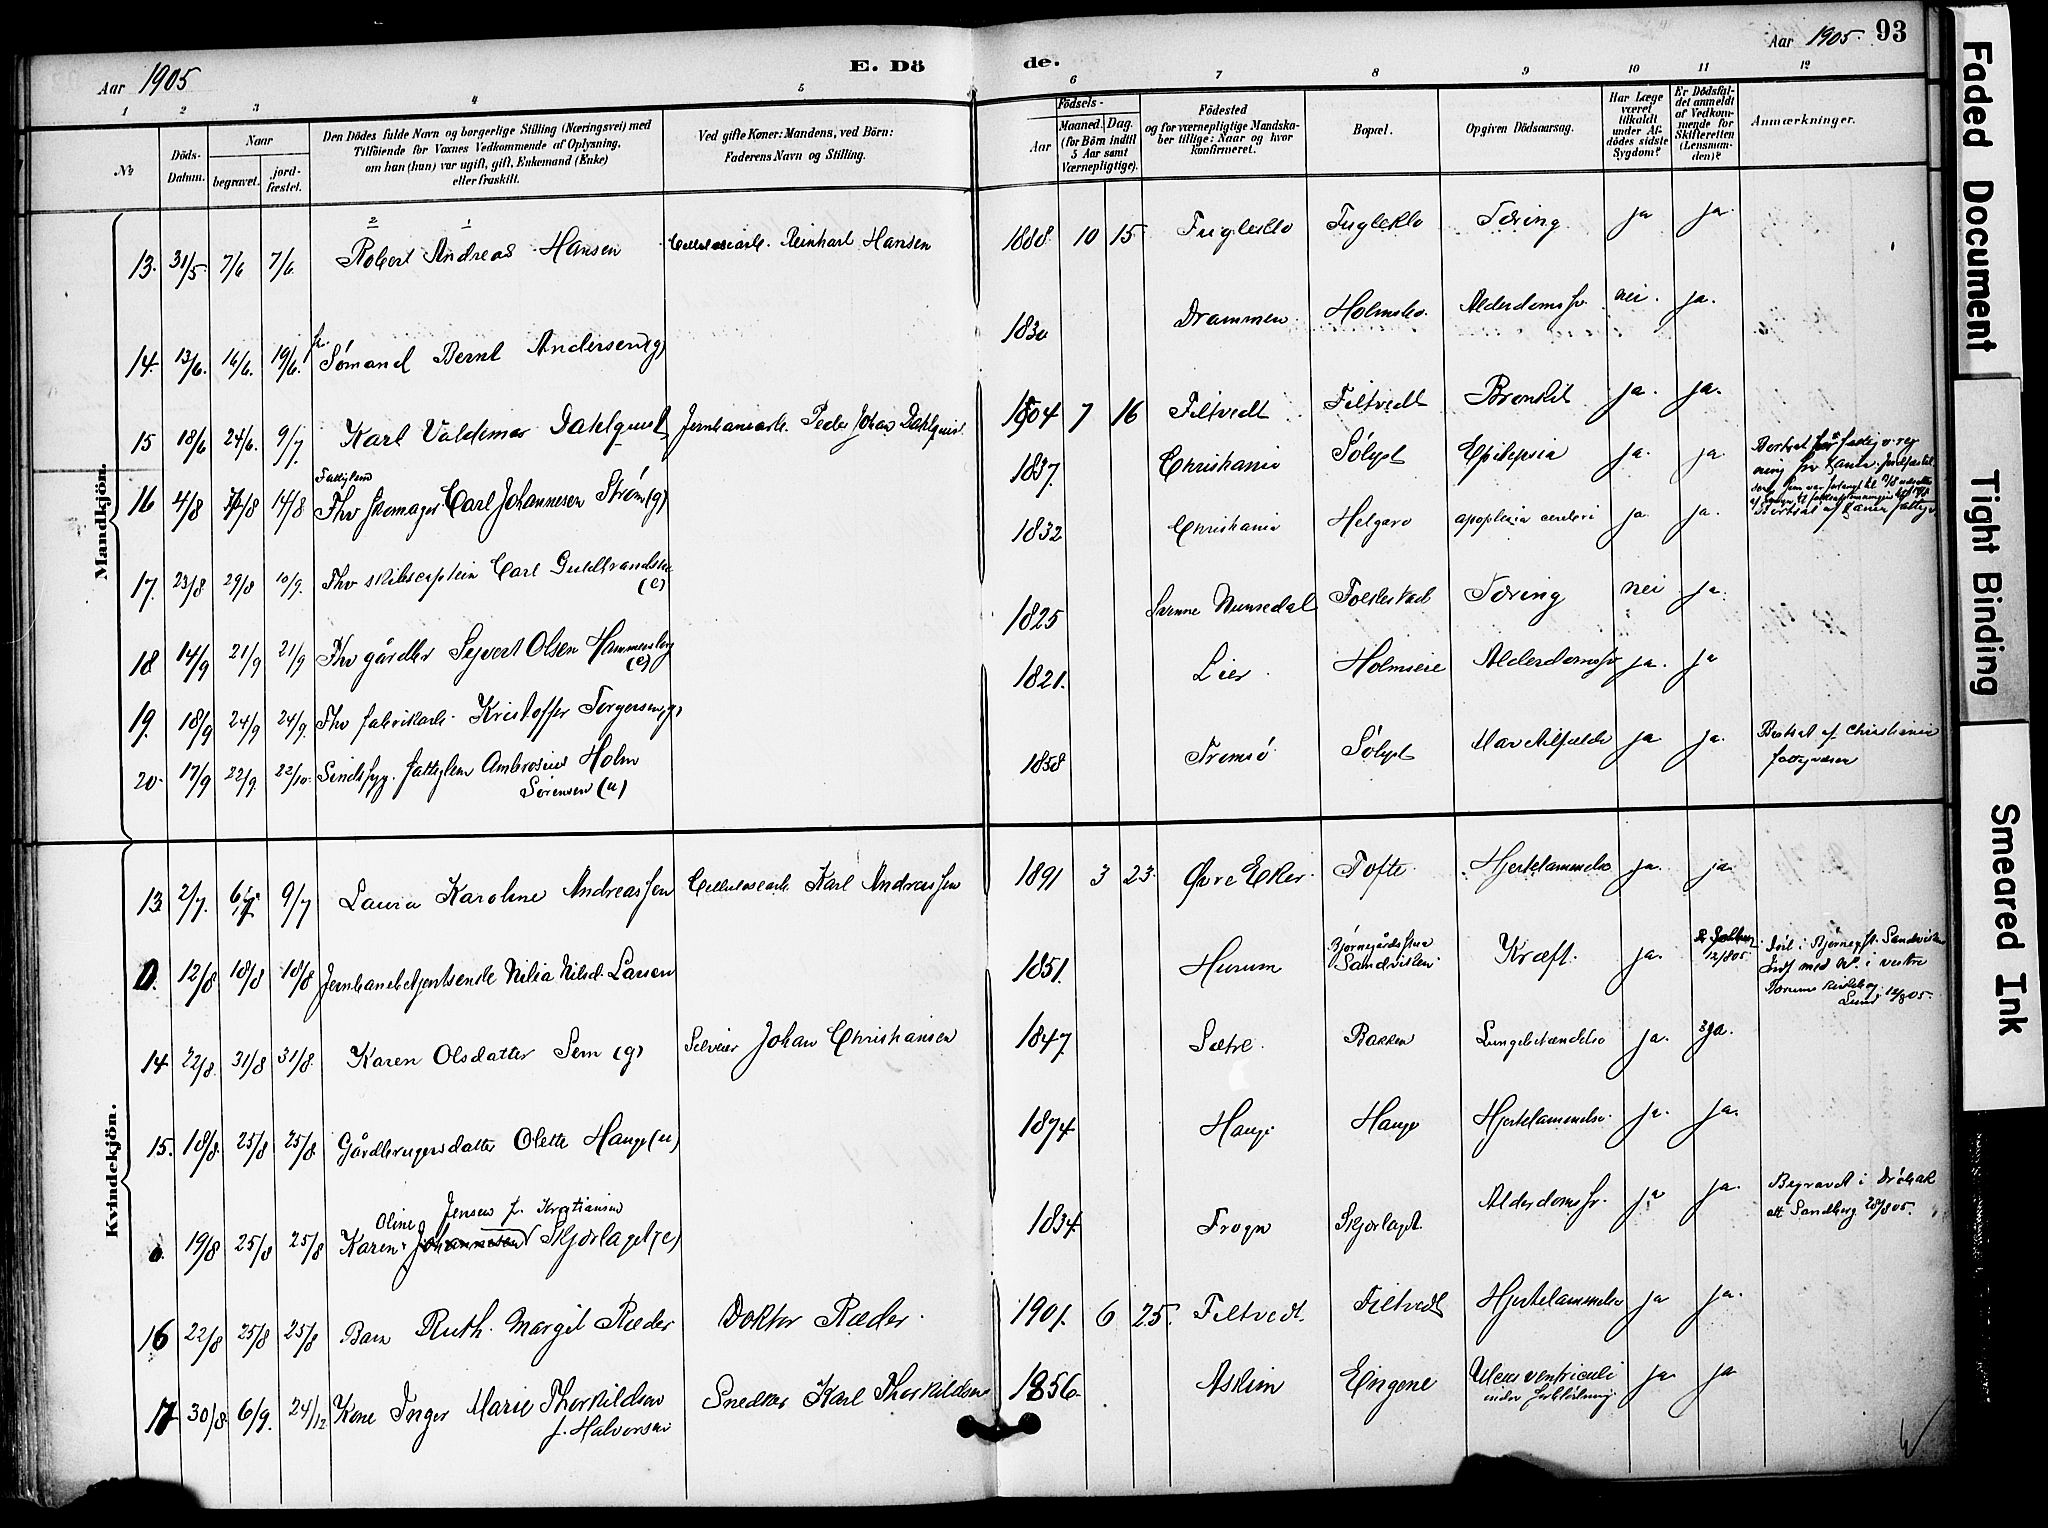 Aar 1905
E. Dö
de.
Aar 1905. 93
1 2 3 4 5 6 7 8 9 10 11 12
№
Döds-Datum.
Naar
begravet.
jord-fæstet.
Den Dödes fulde Navn og borgerlige Stilling (Næringsvei) med
Tilföiende for Voxnes Vedkommende af Oplysning,
om han (hun) var ugift, gift, Enkemand (Enke)
eller fraskilt.
Ved gifte Koner: Mandens, ved Börn:
Faderens Navn og Stilling.
Födsels-
Aar
Maaned. Dag.
(for Börn indtil
5 Aar samt
Værnepligtige).
Födested
og for værnepligtige Mandska-
ber tillige: Naar og hvor
konfirmeret.
Bopæl.
Opgiven Dödsaarsag.
Har Læge
været
tilkaldt
under Af-
dödes sidste
Sygdom?
Er Dödsfal-
det anmeldt
af Vedkom-
mende for
Skifteretten
(Lensman-
den)?
Anmærkninger.
Mandkjön.
2 1
13. 31/5 7/6 7/6. Robert Andreas Hansen Cellulosearb. Reinhart Hansen 1888. 10 15. Fugleklo Fugleklo Tæring ja ja.
14. 13/6. 16/6. 19/6. fr. Sømand Bernt Andersen (g) 1830 Drammen. Holmsbo. Alderdomssv. nei. ja.
15 18/6 24/6. 9/7. Karl Valdemar Dahlquist Jernbanearb. Peder Johan Dahlquist. 1904 7 16 Filtvedt Filtvedt Bronkit ja. ja.
Fattiglem
16 4/8 14/8 Fhv skomager Carl Johannesen Strøm (g) 1837. Christiania Sølyst Epilepsia ja. ja
17. 23/8 29/8 10/9. Fhv skibscaptein Carl Guldbrandsen (e) 1832 Christiania Helgerø apoplexia cerebri ja. ja.
18 14/9 21/9 21/9 Fhv gårdbr Syvert Olsen Hammersborg (e) 1825 Numedal Tæring nei ja.
19. 18/9 24/9 24/9. Fhv fabrikarb. Kristoffer Torgersen (g) 1821. Lier. Alderdomssv ja. ja
20. 17/9 22/9. 22/10. Sindssyg. fattiglem Ambrosius Holm
Sörensen (u) 1858 Tromsö Sølyst ja ja. Bestrat af Christiania
fattigvæsen
Kvindekjön.
13 2/7. 9/7 Laura Karoline Andreassen Cellulosearb. Karl Andreassen 1891 3 23. Øvre Eker. Tofte. Hjertelammelse ja. ja.
0. 12/8 18/8 18/8 Jernbanebetjentsenke Nilia Nilsd. Larsen 1851. Hurum Bjørnegårdsstua
Sandviken. Kræft. ja. 12/8 05.
14 22/8. 31/8 31/8. Karen Olsdatter Sem (g) Selveier Johan Christiansen 1847. Sætre. Bakken Lungebetændelse ja. ja.
15. 18/8. 25/8 25/8. Gårdbrugersdatter Olette Hauge (u) 1874. Hauge Hauge Hjertelammelse. ja. ja.
Oline Jensen f. Kristiansen
0. 19/8 25/8 25/8 Karen Johannesen Skjørlaget (e) 1834. Frogn Skjørlagt. Alderdomssv. ja ja. Begravet i Drøbak
att Sandberg 20/8 05.
16 22/8 25/8 25/8 Barn Ruth. Margit Ræder Doktor Ræder. 1901. 6 25. Filtvedt. Filtvedt Hjertelammelse ja ja.
17 30/8. 6/9. 24/12 Kone Inger Marie Thorkildsen
f. Halvorsen Snedker Karl Thorkildsen 1856. Askim Engene Ulcus ventriculi ja. ja
Faded Document
Tight Binding
Smeared Ink